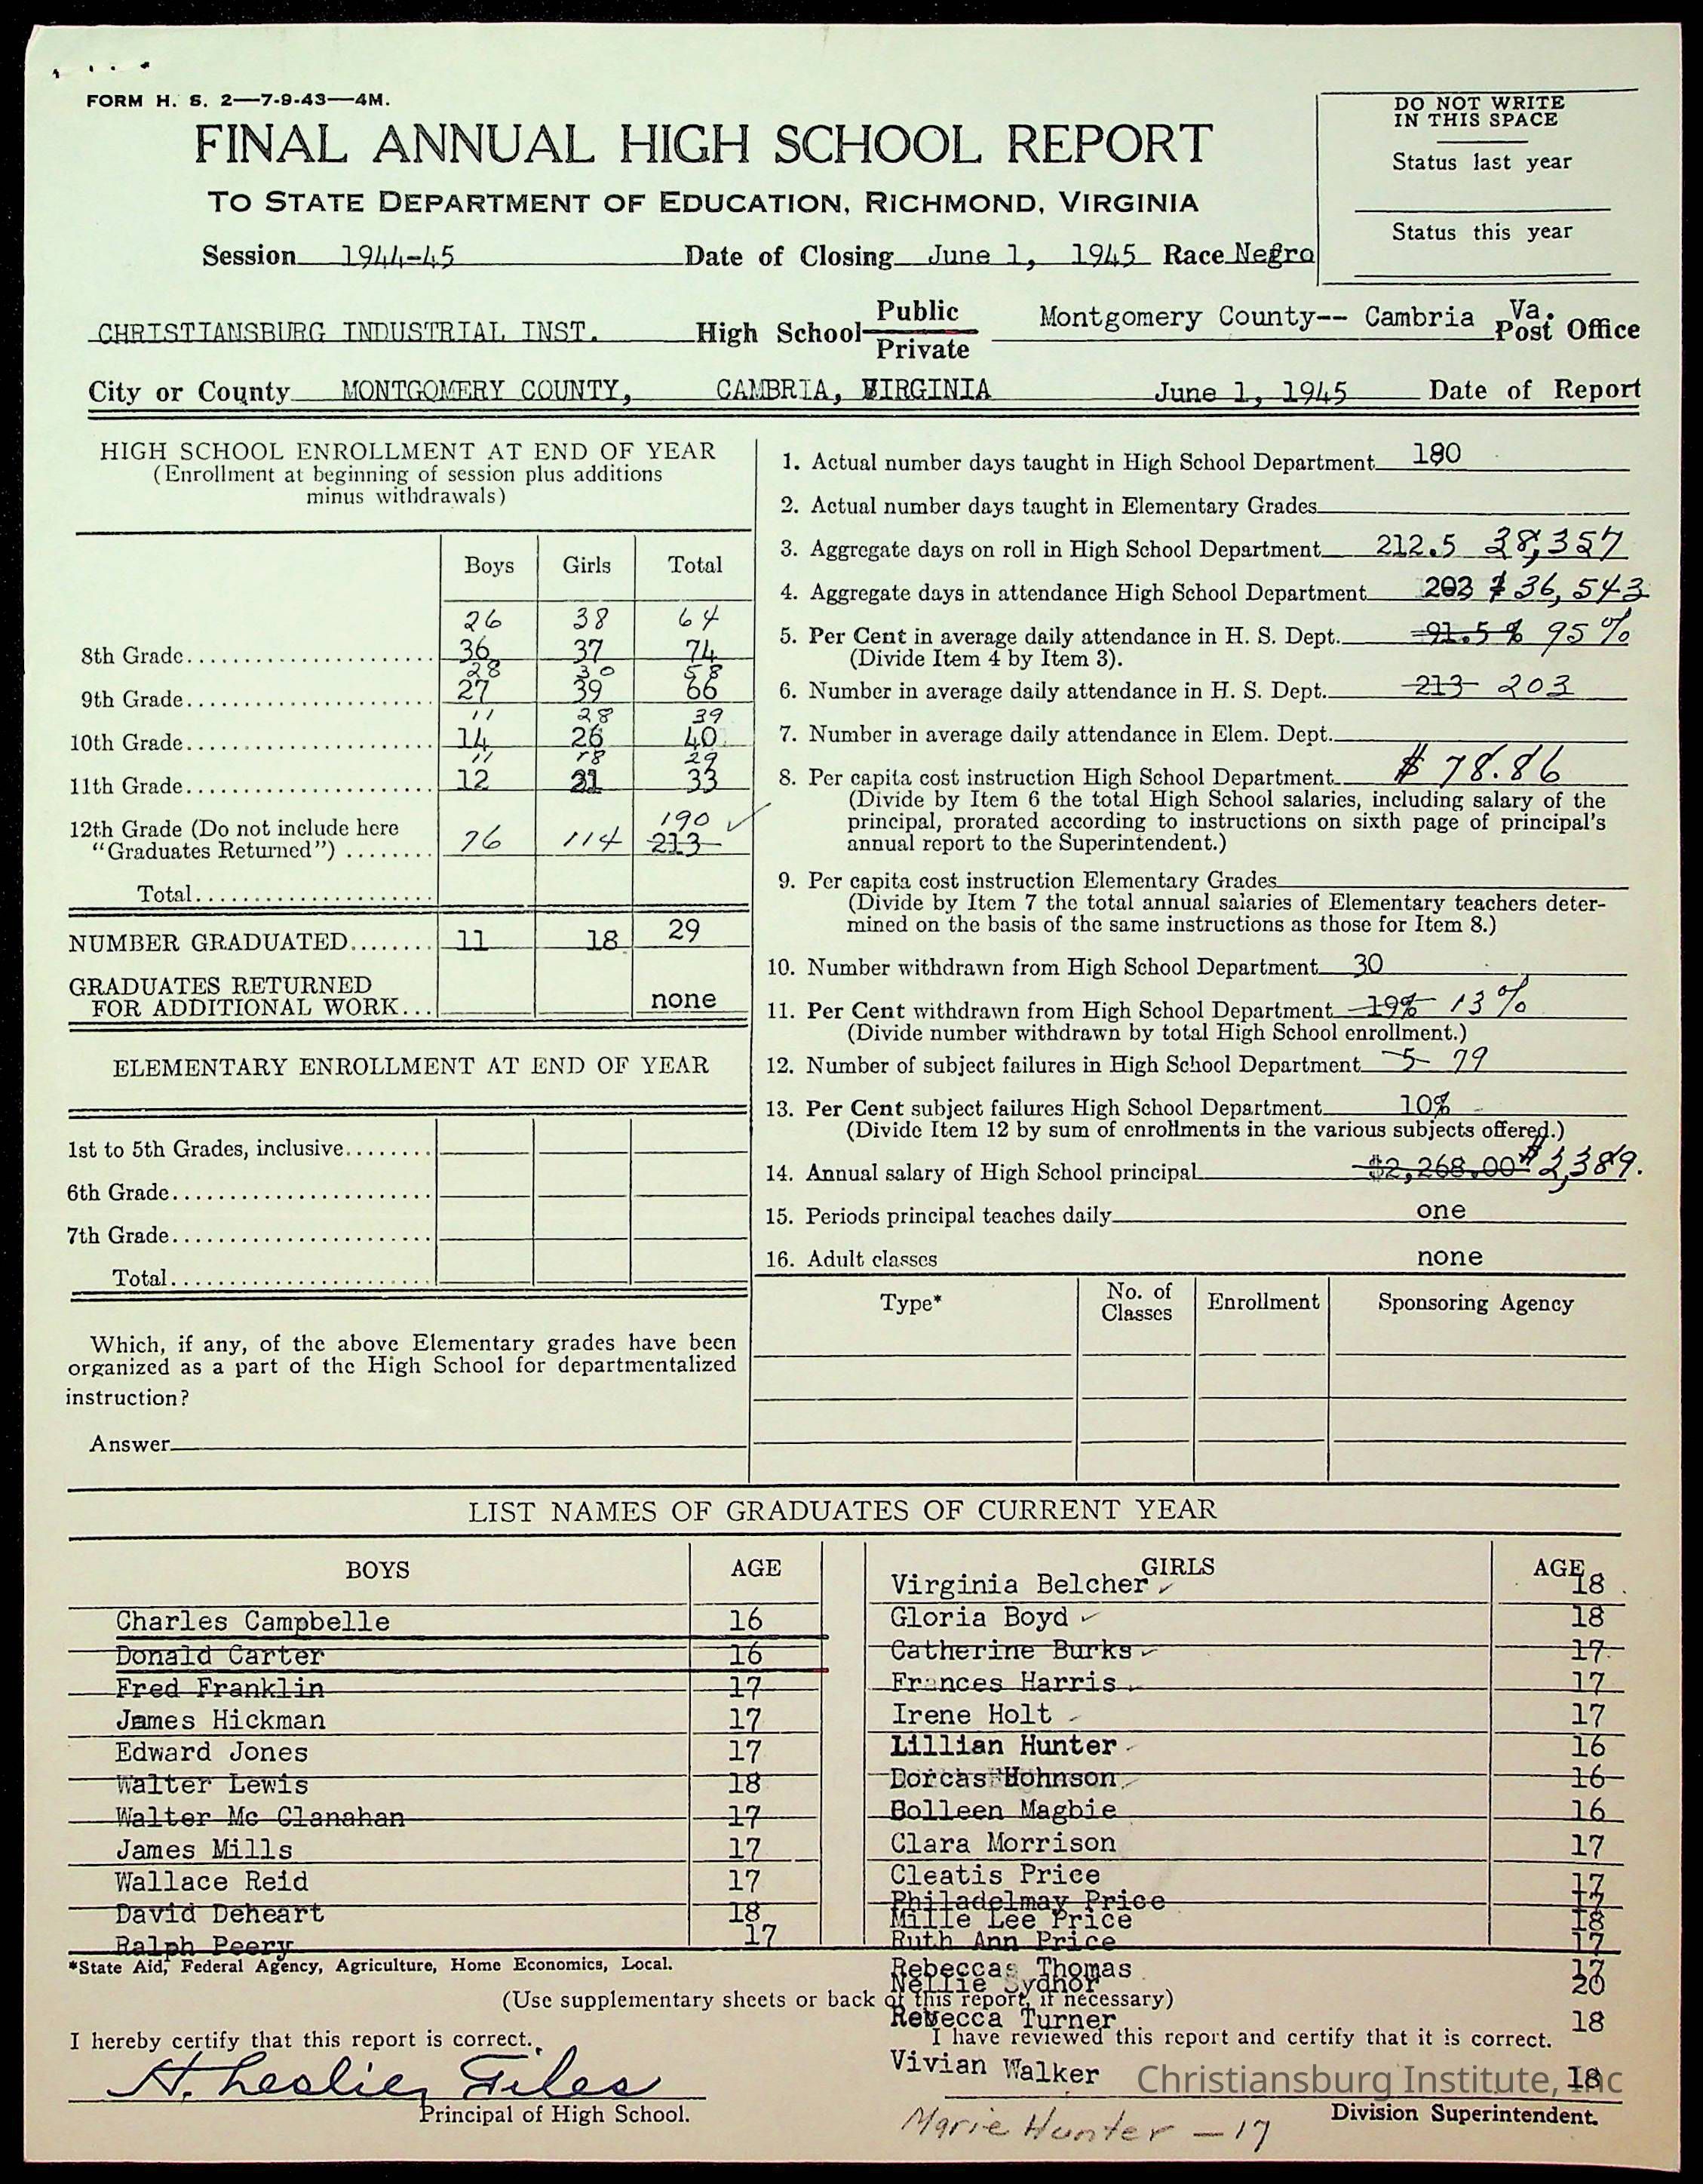 FORM H. S. 2—7-9-43—4M.
FINAL ANNUAL HIGH SCHOOL REPORT
TO STATE DEPARTMENT OF EDUCATION, RICHMOND, VIRGINIA
Session 1944-45 Date of Closing June 1, 1945 Race Negro
DO NOT WRITE
IN THIS SPACE
Status last year
Status this year
CHRISTIANSBURG INDUSTRIAL INST. High School Public Private Montgomery County-- Cambria Va. Post Office
City or County MONTGOMERY COUNTY, CAMBRIA, VIRGINIA June 1, 1945 Date of Report
HIGH SCHOOL ENROLLMENT AT END OF YEAR
(Enrollment at beginning of session plus additions
minus withdrawals)
Boys Girls Total
26 38 64
8th Grade 36 37 74
28 30 58
9th Grade 27 39 66
11 28 39
10th Grade 14 26 40
11 18 29
11th Grade 12 21 33
12th Grade (Do not include here
"Graduates Returned") 76 114 190 213
Total
NUMBER GRADUATED 11 18 29
GRADUATES RETURNED
FOR ADDITIONAL WORK none
ELEMENTARY ENROLLMENT AT END OF YEAR
1st to 5th Grades, inclusive
6th Grade
7th Grade
Total
Which, if any, of the above Elementary grades have been
organized as a part of the High School for departmentalized
instruction?
Answer
1. Actual number days taught in High School Department 180
2. Actual number days taught in Elementary Grades
3. Aggregate days on roll in High School Department 212.5 38,357
4. Aggregate days in attendance High School Department 203 36,543
5. Per Cent in average daily attendance in H. S. Dept. 91.5% 95%
(Divide Item 4 by Item 3).
6. Number in average daily attendance in H. S. Dept. 213 203
7. Number in average daily attendance in Elem. Dept.
8. Per capita cost instruction High School Department $78.86
(Divide by Item 6 the total High School salaries, including salary of the
principal, prorated according to instructions on sixth page of principal's
annual report to the Superintendent.)
9. Per capita cost instruction Elementary Grades
(Divide by Item 7 the total annual salaries of Elementary teachers deter-
mined on the basis of the same instructions as those for Item 8.)
10. Number withdrawn from High School Department 30
11. Per Cent withdrawn from High School Department 19% 13%
(Divide number withdrawn by total High School enrollment.)
12. Number of subject failures in High School Department 5 79
13. Per Cent subject failures High School Department 10%
(Divide Item 12 by sum of enrollments in the various subjects offered.)
14. Annual salary of High School principal $2,268.00 $2,389.
15. Periods principal teaches daily one
16. Adult classes none
Type* No. of Classes Enrollment Sponsoring Agency
LIST NAMES OF GRADUATES OF CURRENT YEAR
BOYS AGE
Charles Campbelle 16
Donald Carter 16
Fred Franklin 17
James Hickman 17
Edward Jones 17
Walter Lewis 18
Walter Mc Clanahan 17
James Mills 17
Wallace Reid 17
David Deheart 18
Ralph Peery 17
GIRLS AGE
Virginia Belcher 18
Gloria Boyd 18
Catherine Burks 17
Frances Harris 17
Irene Holt 17
Lillian Hunter 16
Dorcas Hohnson 16
Bolleen Magbie 16
Clara Morrison 17
Cleatis Price 17
Philadelmay Price 17
Mille Lee Price 18
Ruth Ann Price 17
Rebecca Thomas 17
Nellie Sydnor 20
Rebecca Turner 18
Vivian Walker 18
Marie Hunter — 17
*State Aid, Federal Agency, Agriculture, Home Economics, Local.
(Use supplementary sheets or back of this report, if necessary)
I hereby certify that this report is correct.
H. Leslie Giles
Principal of High School.
I have reviewed this report and certify that it is correct.
Christiansburg Institute, Inc
Division Superintendent.